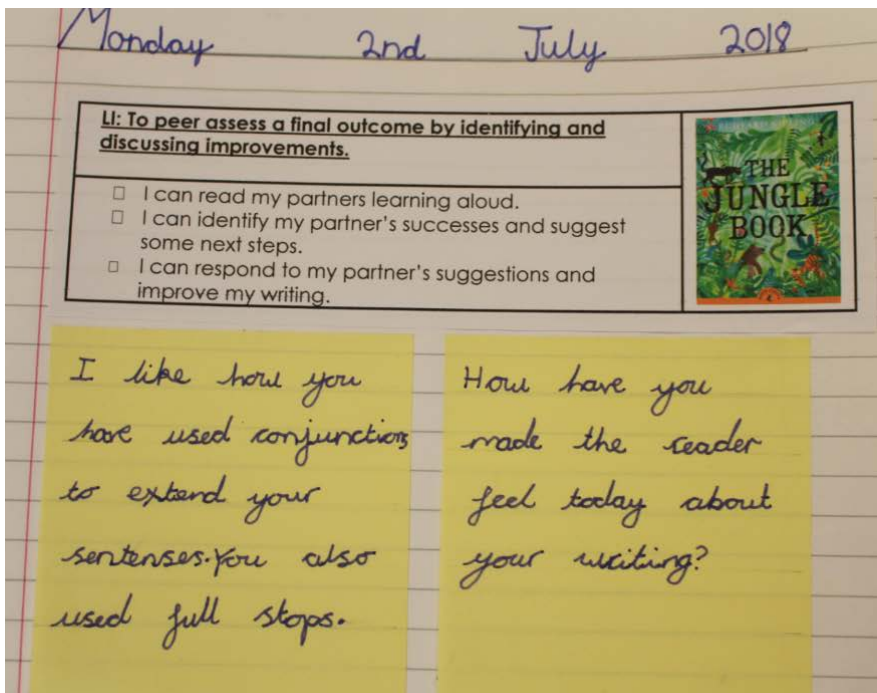 Monday 2nd July 2018
LI: To peer assess a final outcome by identifying and
discussing improvements.
I can read my partners learning aloud.
I can identify my partner's successes and suggest
some next steps.
I can respond to my partner's suggestions and
improve my writing.
THE
JUNGLE
BOOK
I like how you
have used conjunctions
to extend your
sentenses. You also
used full stops.
How have you
made the reader
feel today about
your writing?